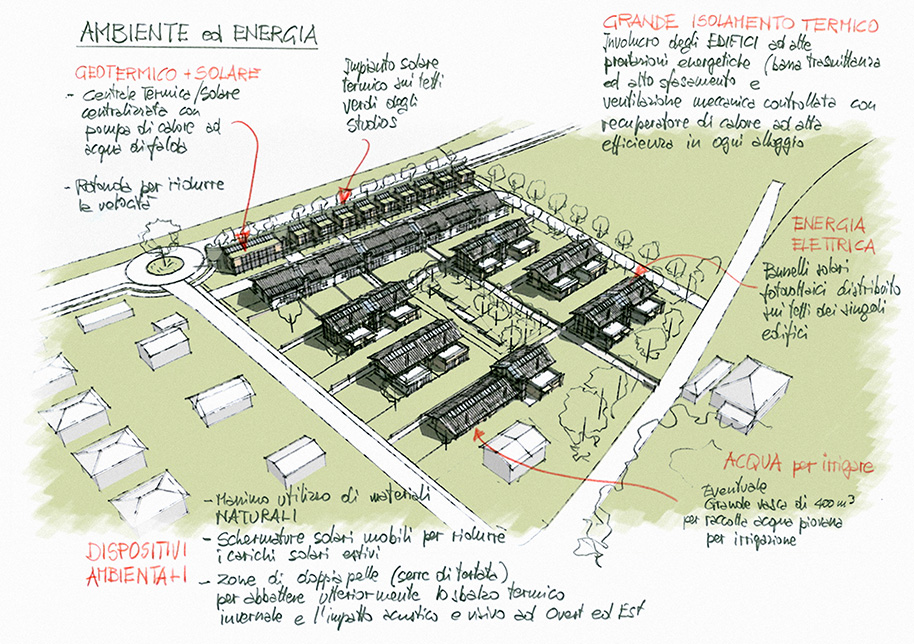 AMBIENTE ed ENERGIA
GEOTERMICO + SOLARE
- Centrale Termica/Solare
centralizzata con
pompa di calore ad
acqua di falda
- Rotonda per ridurre
la velocità
Impianto solare
termico sui tetti
verdi degli
Studios
GRANDE ISOLAMENTO TERMICO
Involucro degli EDIFICI ad alte
prestazioni energetiche (bassa trasmittanza
ed alto sfasamento e
ventilazione meccanica controllata con
recuperatore di calore ad alta
efficienza in ogni alloggio
ENERGIA
ELETTRICA
Pannelli solari
fotovoltaici distribuito
sui tetti dei singoli
edifici
ACQUA per irrigare
Eventuale
Grande vasca di 400 m³
per raccolta acqua piovana
per irrigazione
DISPOSITIVI
AMBIENTALI
- Massimo utilizzo di materiali
NATURALI
- Schermature solari mobili per ridurre
i carichi solari estivi
- Zone di doppia pelle (serre di testata)
per abbattere ulteriormente lo sbalzo termico
invernale e l'impatto acustico e visivo ad Ovest ed Est